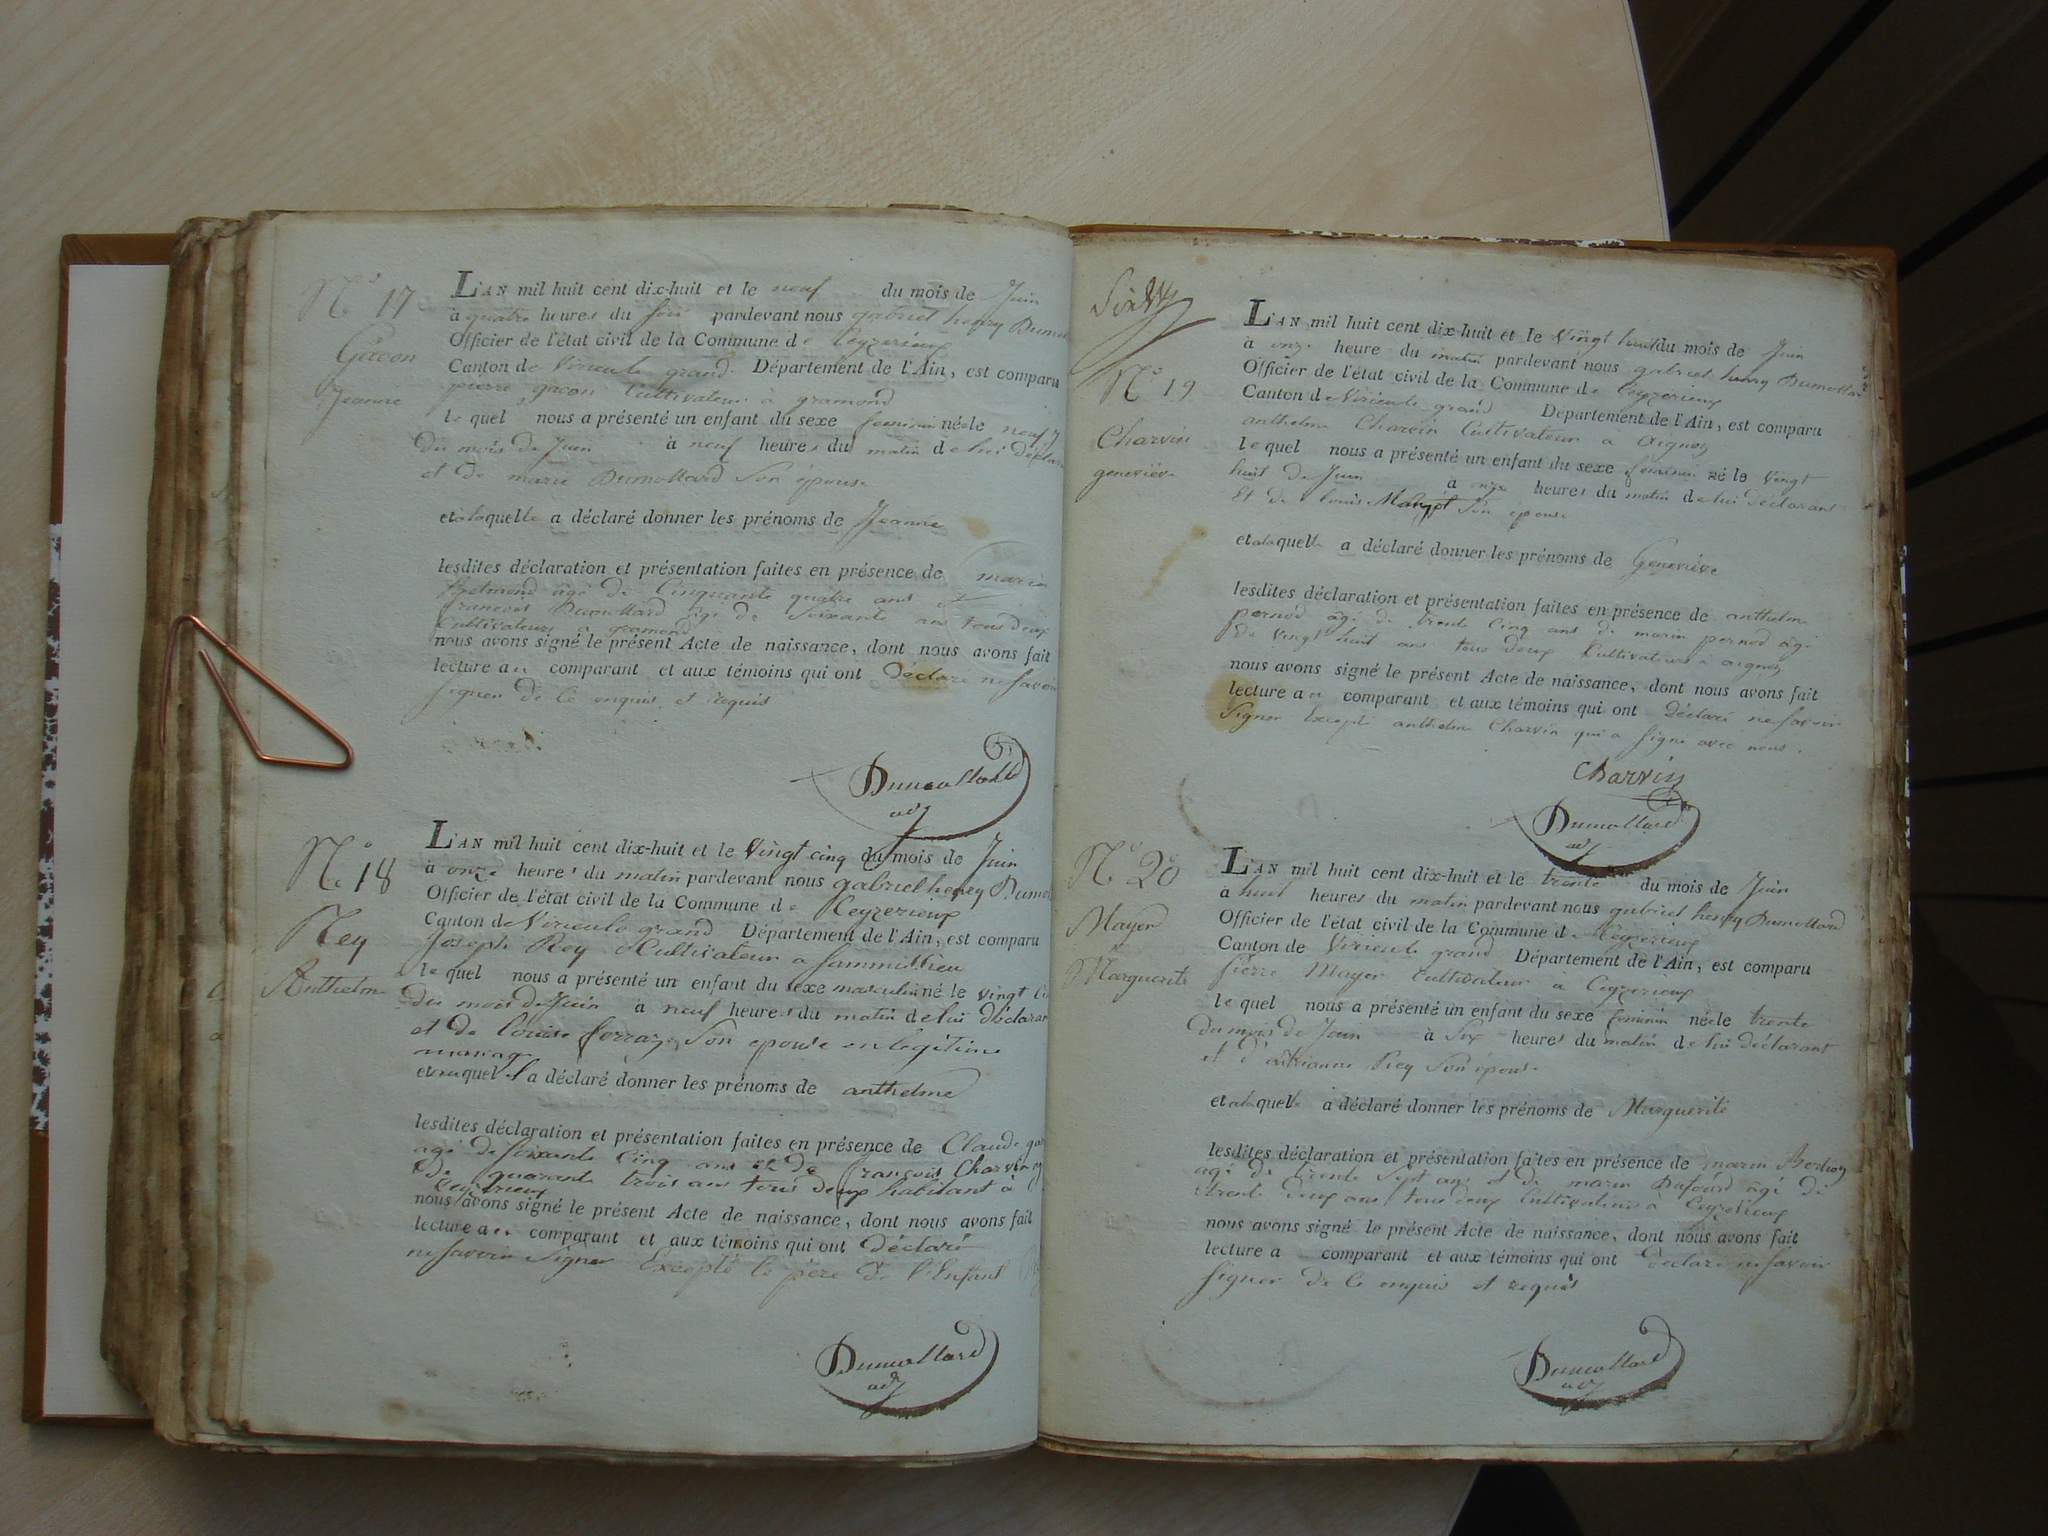 N.° 17
Gacon
Jeanne
L'AN mil huit cent dix-huit et le neuf du mois de Juin
à quatre heures du soir pardevant nous gabriel henry Dumol
Officier de l'état civil de la Commune de Ceyzerieux
Canton de Virieu le grand Département de l'Ain, est comparu
pierre gacon Cultivateur à gramond
le quel nous a présenté un enfant du sexe feminin née le neuf
du mois de Juin à neuf heures du matin de lui déclara
et de marie Dumollard Son épouse
et a laquelle a déclaré donner les prénoms de Jeanne
lesdites déclaration et présentation faites en présence de marin
âgé de Cinquante quatre ans et
francois Dumollard âgé de Soixante ans tous deux
Cultivateurs a gramond
nous avons signé le présent Acte de naissance, dont nous avons fait
lecture au comparant et aux témoins qui ont Déclaré ne savoir
signer de ce enquis et requis
Dumollard
adj
N.° 18
Rey
Anthelme
L'AN mil huit cent dix-huit et le Vingt cinq du mois de Juin
à onze heures du matin pardevant nous gabriel henry Dumol
Officier de l'état civil de la Commune de Ceyzerieux
Canton de Virieu le grand Département de l'Ain, est comparu
Joseph Rey Cultivateur a Sammillieu
le quel nous a présenté un enfant du sexe masculin né le vingt Ci
du mois de Juin à neuf heures du matin de lui déclaran
et de Louise ferraz Son epouse en legitime
mariage
et auquel il a déclaré donner les prénoms de anthelme
lesdites déclaration et présentation faites en présence de Claude ga
agé de soixante Cinq ans et de francois Charvin
de quarante trois ans tous deux habitant à
Ceyzerieux
nous avons signé le présent Acte de naissance, dont nous avons fait
lecture au comparant et aux témoins qui ont déclaré
ne savoir Signer Excepté le père de l'Enfant
Dumollard
adj
N.° 19
Charvin
geneviève
L'AN mil huit cent dix-huit et le Vingt huit du mois de Juin
à onze heure du matin pardevant nous gabriel henry Dumollar
Officier de l'état civil de la Commune de Ceyzerieux
Canton de Virieu le grand Département de l'Ain, est comparu
anthelme Charvin Cultivateur a aignoz
le quel nous a présenté un enfant du sexe feminin né le Vingt
huit de Juin à onze heures du matin de lui déclarant
Et de Louise Son epouse
et a laquelle a déclaré donner les prénoms de Geneviève
lesdites déclaration et présentation faites en présence de anthelme
pernod âgé de trente Cinq ans de marin pernod âgé
de vingt huit ans tous deux Cultivateurs à aignoz
nous avons signé le présent Acte de naissance, dont nous avons fait
lecture au comparant et aux témoins qui ont déclaré ne savoir
Signer Excepté anthelme Charvin qui a signé avec nous.
Charvin
Dumollard
adj
N.° 20
Mayer
Marguerite
L'AN mil huit cent dix-huit et le trente du mois de Juin
à huit heures du matin pardevant nous gabriel henry Dumollard
Officier de l'état civil de la Commune de Ceyzerieux
Canton de Virieu le grand Département de l'Ain, est comparu
pierre Mayer Cultivateur à Ceyzerieux
le quel nous a présenté un enfant du sexe feminin née le trente
du mois de Juin à Six heures du matin de lui déclarant
et d' Rey Son épouse
et a laquelle a déclaré donner les prénoms de Marguerite
lesdites déclaration et présentation faites en présence de marin
agé de trente Sept ans et de marin Dufourd âgé de
trente deux ans tous deux Cultivateurs à Ceyzerieux
nous avons signé le présent Acte de naissance, dont nous avons fait
lecture a comparant et aux témoins qui ont déclaré ne savoir
signer de ce enquis et requis
Dumollard
adj